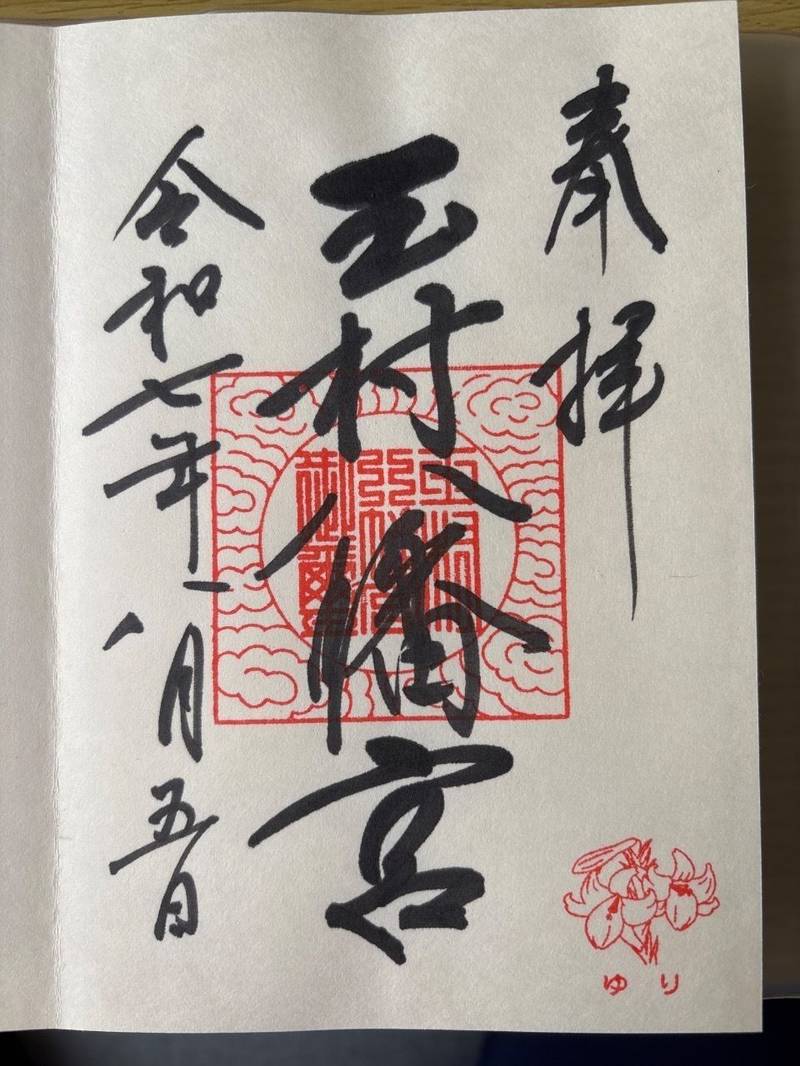 奉拝
玉村八幡宮
令和七年八月五日
ゆり